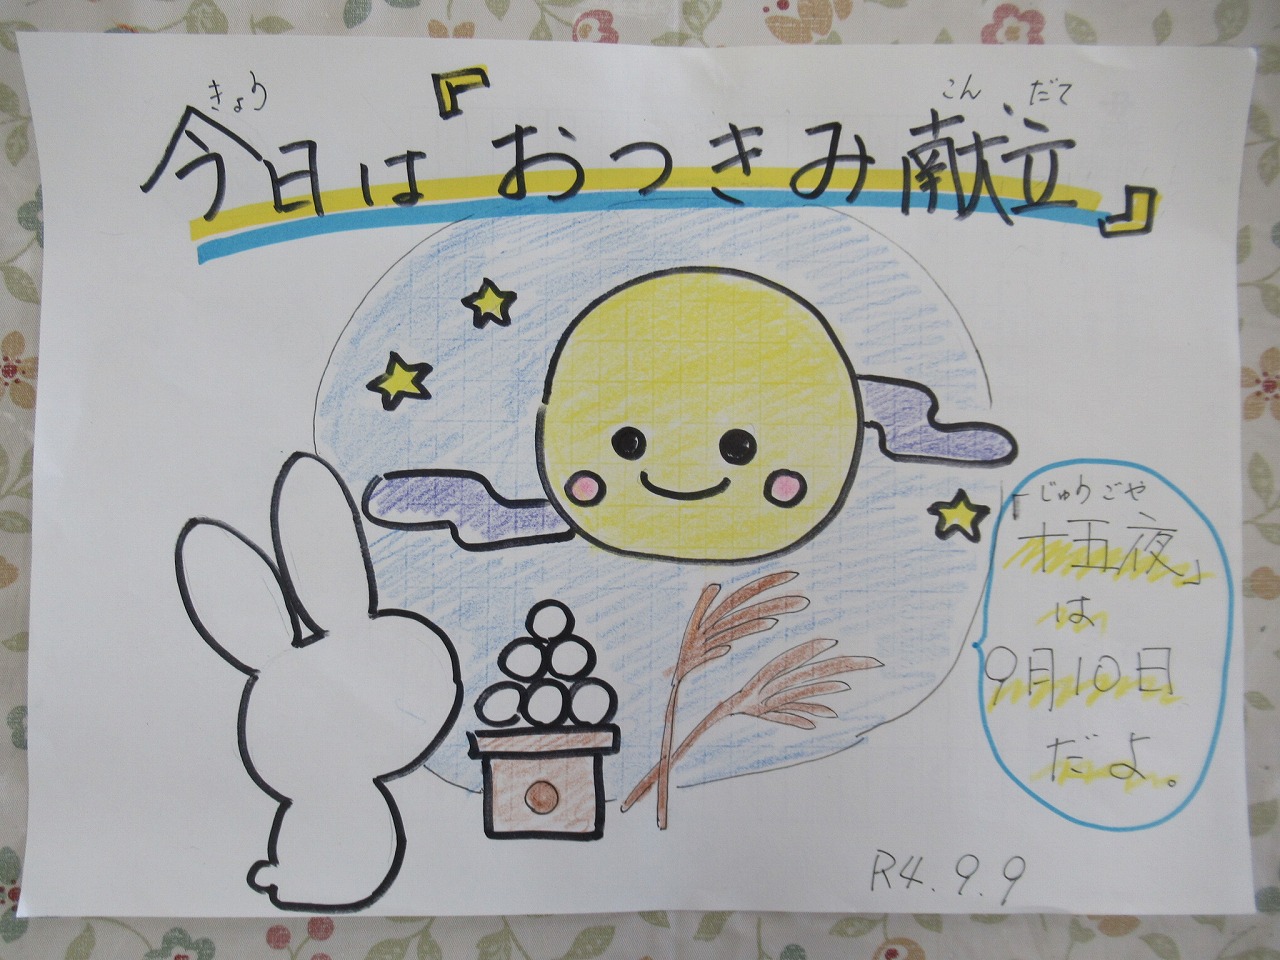 きょう こん だて
今日は『おつきみ献立』
じゅうごや
「十五夜」
は
9月10日
だよ。
R4.9.9